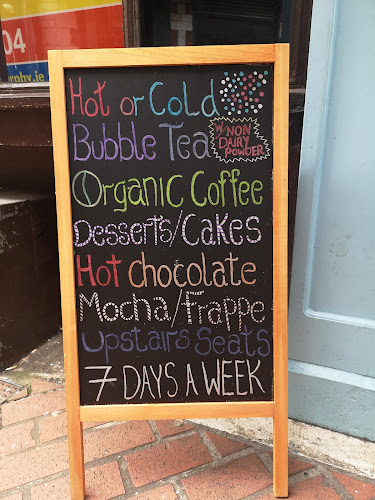 04
rphy.ie
Hot or Cold
Bubble Tea
W NON
DAIRY
POWDER
Organic Coffee
Desserts/Cakes
Hot chocolate
Mocha/frappe
Upstairs Seats
7 DAYS A WEEK